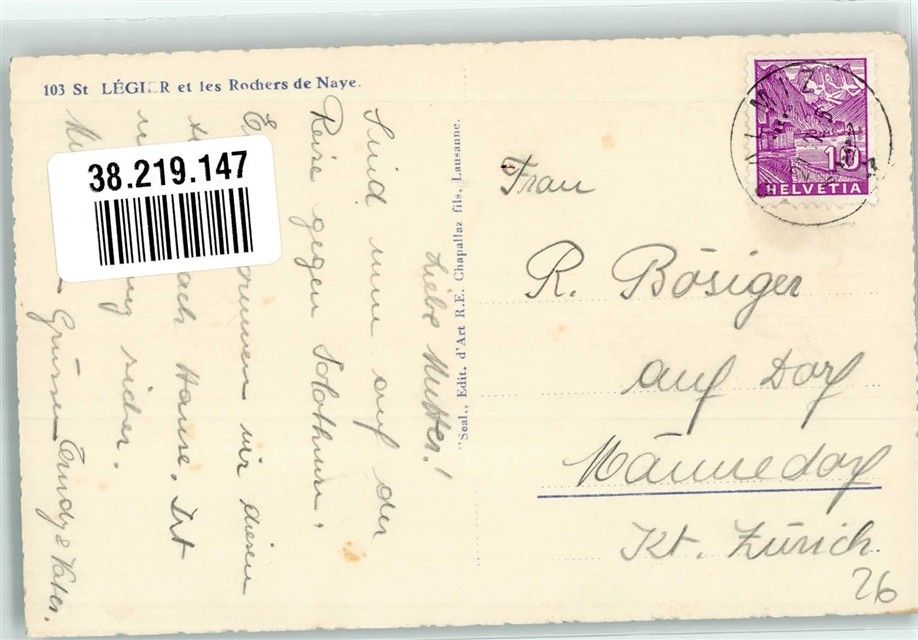 103 St LÉGIER et les Rochers de Naye.
Liebe Mutter!
Sind nun auf der
Reise gegen Solothurn.
wir diesen
nach Hause. Ist
sicher.
Grüssen
Vater.
"Seal", Edit. d'Art R.E. Chapallaz fils, Lausanne.
38.219.147
10
HELVETIA
Frau
R. Bösiger
auf Dorf
Männedorf
Kt. Zürich.
26